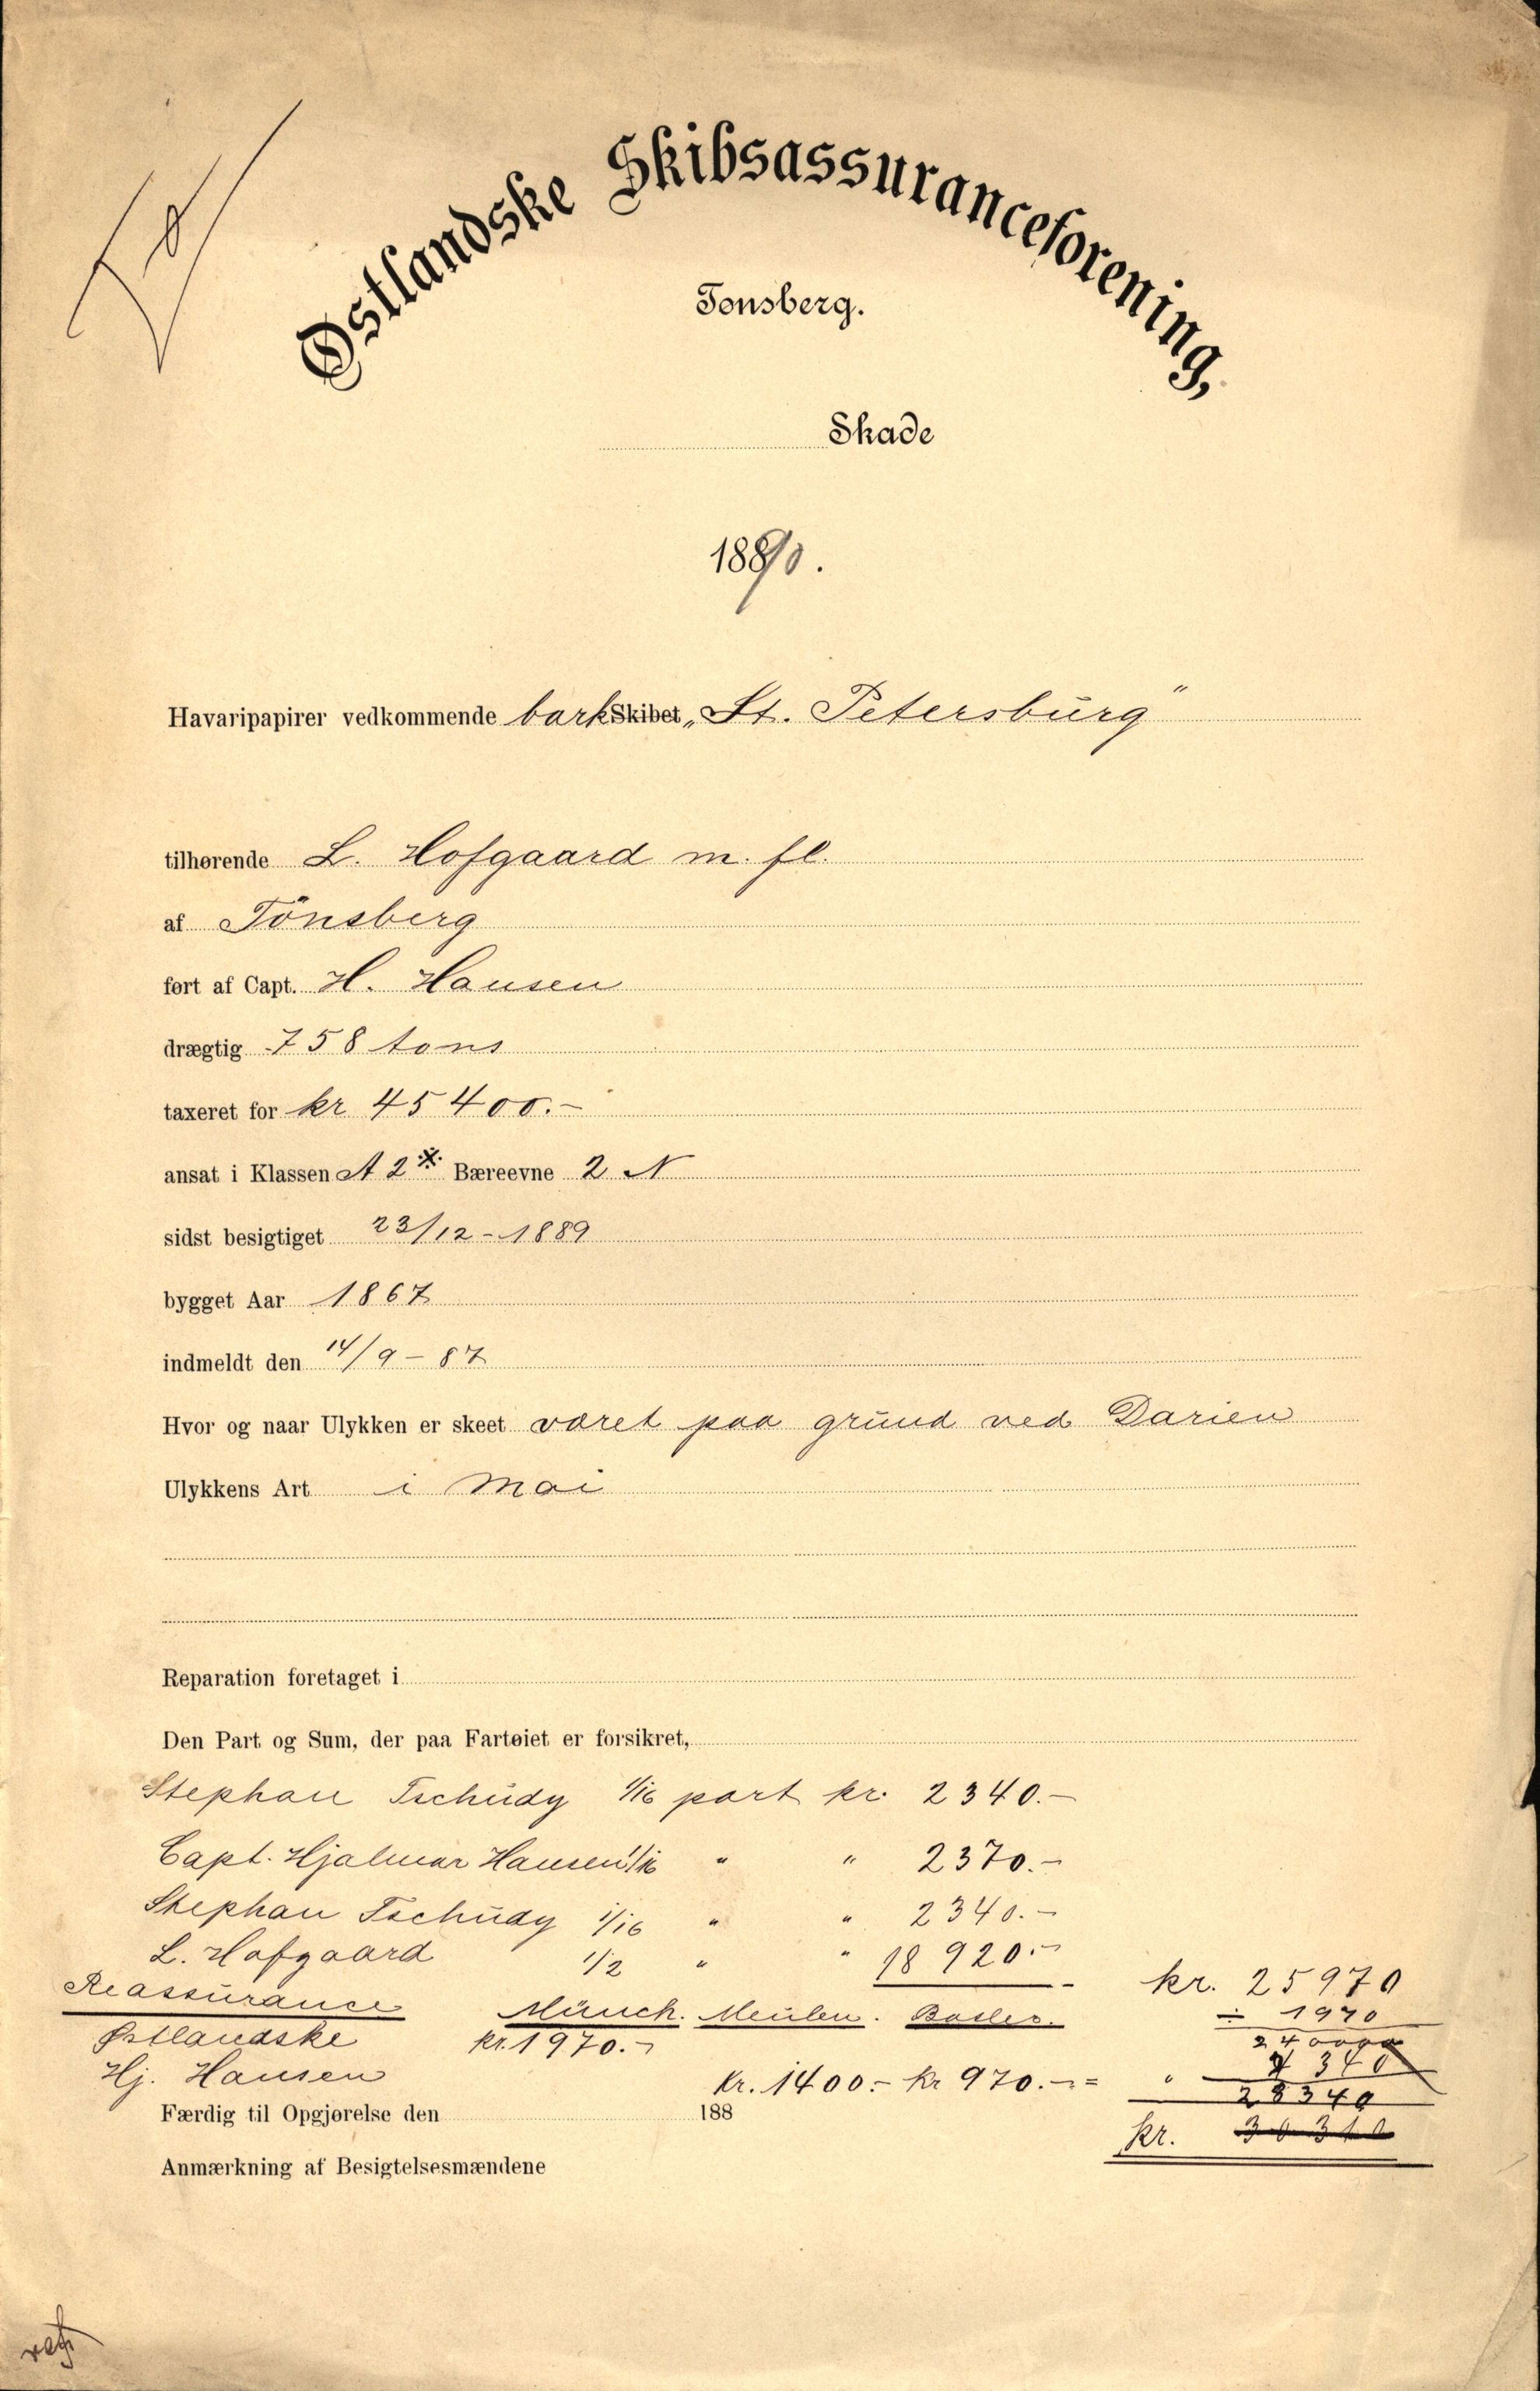 Østlandske Skibsassuranceforening,
Tønsberg.
Skade
1890.
Havaripapirer vedkommende bark Skibet „St. Petersburg"
tilhørende L. Hofgaard m. fl.
af Tönsberg
ført af Capt. H. Hansen
drægtig 758 tons
taxeret for kr 45 400.-
ansat i Klassen A 2 Bæreevne 2 N
sidst besigtiget 23/12-1889
bygget Aar 1867
indmeldt den 14/9-87
Hvor og naar Ulykken er skeet været paa grund ved Darien
Ulykkens Art i Mai
Reparation foretaget i
Den Part og Sum, der paa Fartøiet er forsikret,
Stephan Tschudy 1/16 part kr. 2340.-
Capt. Hjalmar Hansen 1/16 " " 2370.-
Stephan Tschudy 1/16 " " 2340.-
L. Hofgaard 1/2 " " 18 920.-
kr. 25970
Reassurance Münch. Meulen. Basler.
÷ 1970
Østlandske kr. 1970.-
24000
Hj. Hansen kr. 1400.- kr 970.- = " 340
28340
Færdig til Opgjørelse den 188
kr.
Anmærkning af Besigtelsesmændene